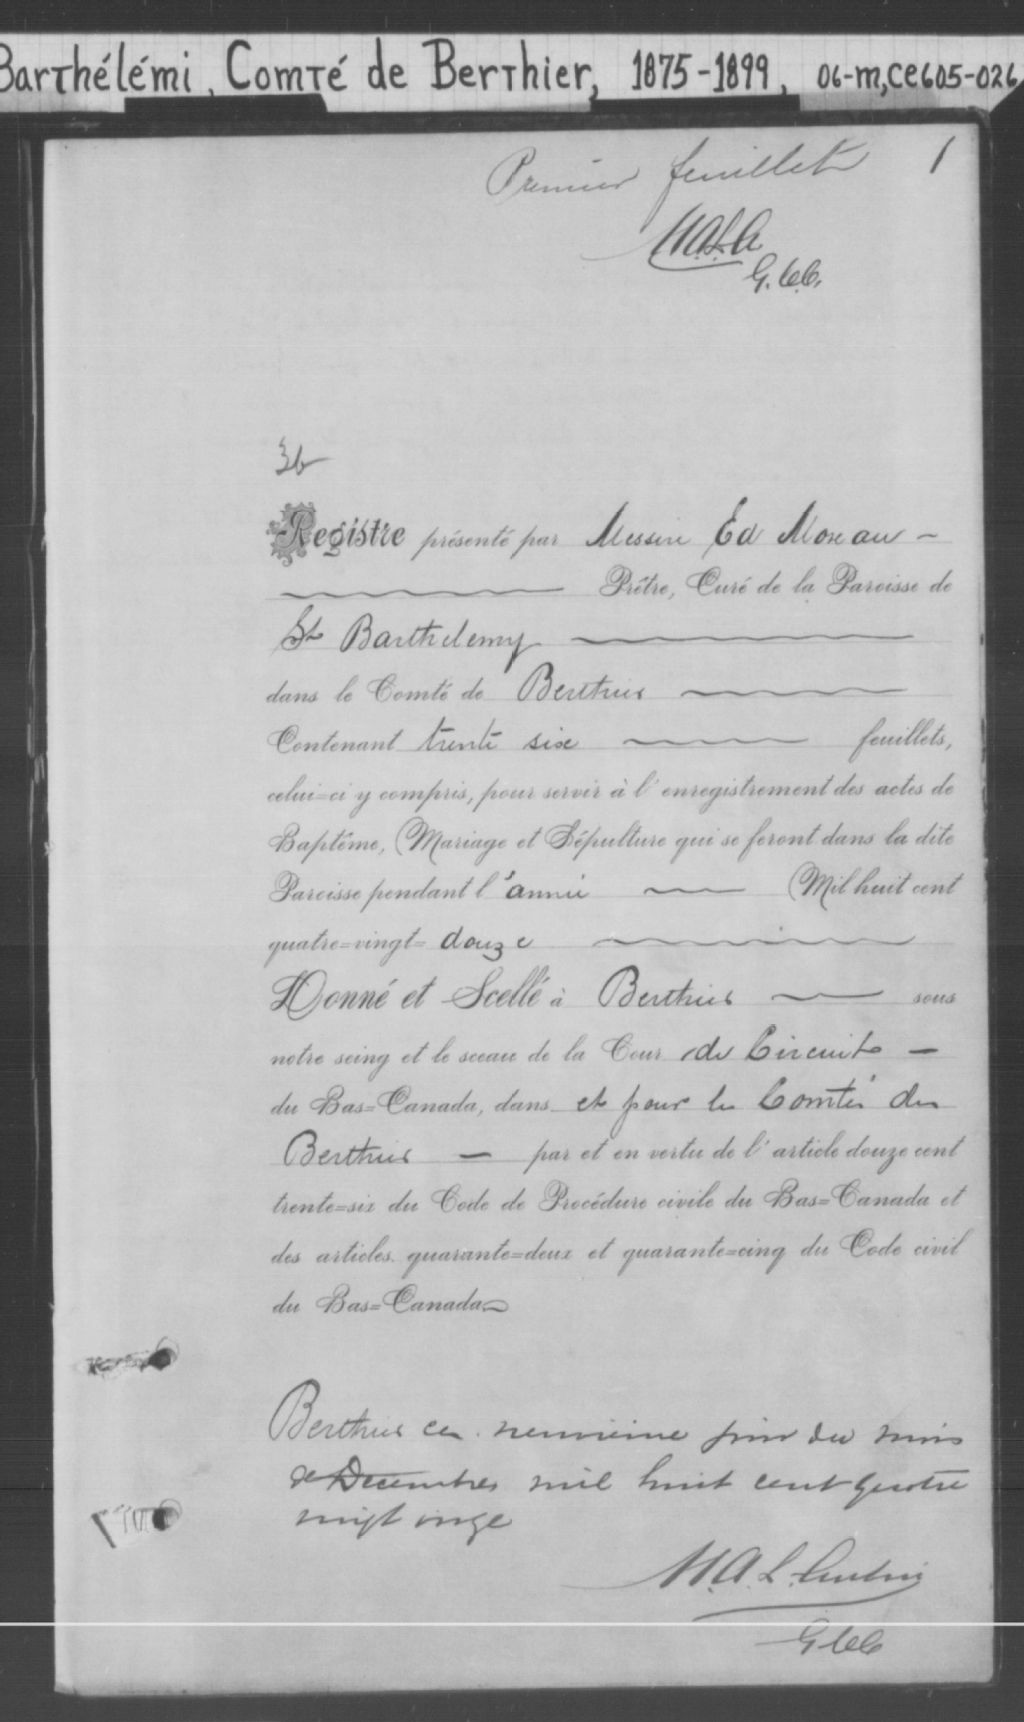 Barthélémi, Comté de Berthier, 1875-1899, 06-m,ce605-026
Premier feuillet 1
M.A.L.A
G.C.C.
36
Registre présenté par Messire Ed Moreau
Prêtre, Curé de la Paroisse de
St Barthelemy
dans le Comté de Berthier
Contenant trente six feuillets,
celui-ci y compris, pour servir à l'enregistrement des actes de
Baptême, Mariage et Sépulture qui se feront dans la dite
Paroisse pendant l'année Mil huit cent
quatre-vingt-douze
Donné et Scellé à Berthier sous
notre seing et le sceau de la Cour de Circuit
du Bas-Canada, dans et pour le Comté de
Berthier par et en vertu de l'article douze cent
trente-six du Code de Procédure civile du Bas-Canada et
des articles quarante-deux et quarante-cinq du Code civil
du Bas-Canada
Berthier ce neuvième jour du mois
de Décembre mil huit cent quatre
vingt onze
M.A.L. Aubin
G.C.C